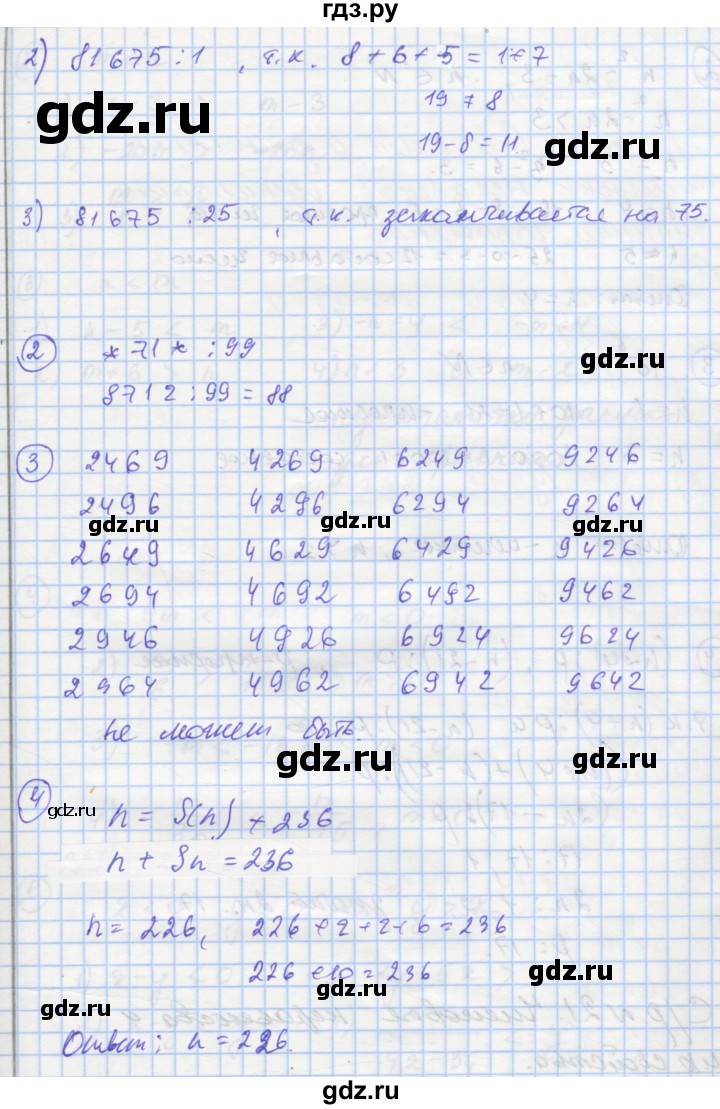 гдз.ру
2) 81675 : 1 , т.к. 8+6+5 = 1+7
19 ≠ 8
19-8 = 11.
gdz.ru
gdz.ru
3) 81675 : 25 , т.к. заканчивается на 75.
gdz.ru
gdz.ru
2 *71* : 99
gdz.ru
8712 : 99 = 88
3 2469 4269 6249 9246
2496 4296 6294 9264
gdz.ru gdz.ru gdz.ru
2649 4629 6429 9426
2694 4692 6492 9462
2946 4926 6924 9624
gdz.ru
2964 4962 6942 9642
gdz.ru
не может быть.
gdz.ru
gdz.ru
4 n = S(n) + 236
gdz.ru
n + Sn = 236
gdz.ru
n = 226, 226 + 2 + 2 + 6 = 236
226 + 10 = 236
gdz.ru
gdz.ru
Ответ: n = 226.
gdz.ru
gdz.ru
gdz.ru